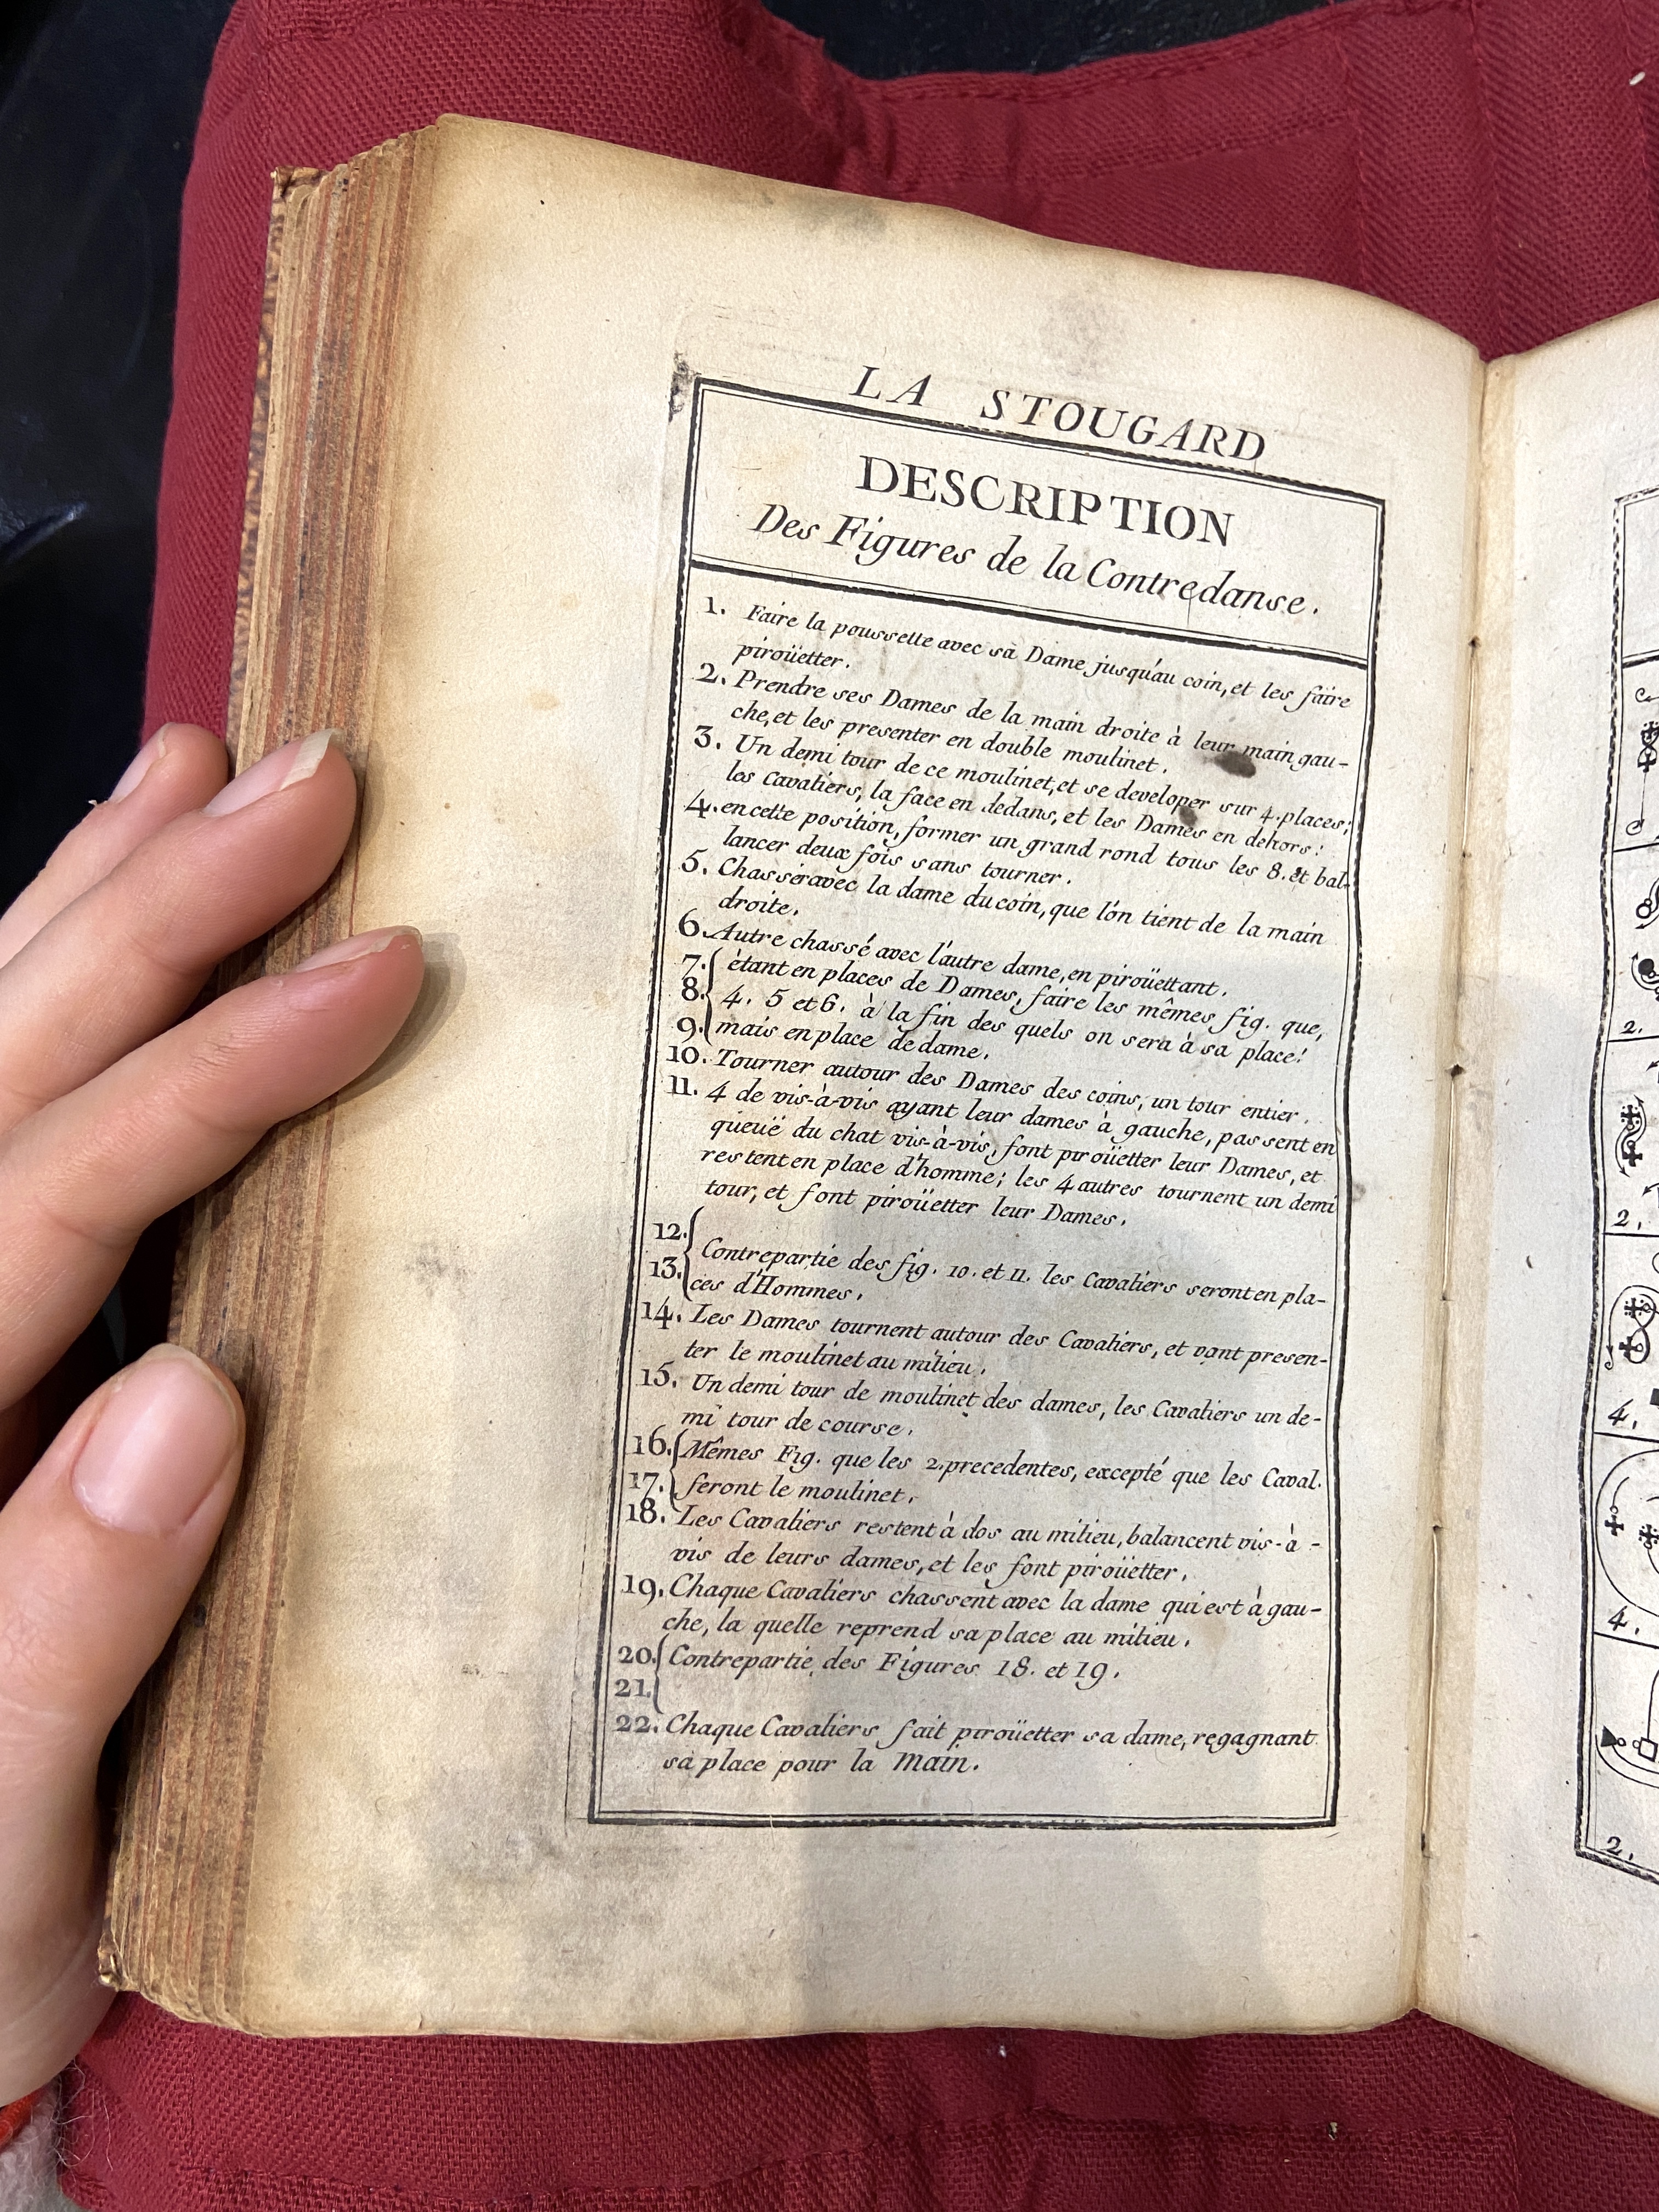 LA STOUGARD
DESCRIPTION
Des Figures de la Contredanse.
1. Faire la poussette avec sa Dame jusqu'au coin, et les faire
piroüetter.
2. Prendre ses Dames de la main droite à leur main gau-
che, et les presenter en double moulinet.
3. Un demi tour de ce moulinet, et se developer sur 4. places;
les Cavaliers, la face en dedans, et les Dames en dehors:
4. en cette position, former un grand rond tous les 8. et bal-
lancer deux fois sans tourner.
5. Chasser avec la dame du coin, que l'on tient de la main
droite.
6. Autre chassé avec l'autre dame, en piroüettant.
7. étant en places de Dames, faire les mêmes fig. que,
8. 4. 5 et 6. à la fin des quels on sera à sa place!
9. mais en place de dame.
10. Tourner autour des Dames des coins, un tour entier.
11. 4 de vis-à-vis ayant leur dames à gauche, passent en
queüe du chat vis-à-vis, font piroüetter leur Dames, et
restent en place d'homme; les 4 autres tournent un demi
tour, et font piroüetter leur Dames.
12.
Contrepartie des fig. 10. et 11. les Cavaliers seront en pla-
13. ces d'Hommes.
14. Les Dames tournent autour des Cavaliers, et vont presen-
ter le moulinet au milieu.
15. Un demi tour de moulinet des dames, les Cavaliers un de-
mi tour de course.
16. Mêmes Fig. que les 2. precedentes, excepté que les Caval.
17. feront le moulinet.
18. Les Cavaliers restent à dos au milieu, balancent vis-à-
vis de leurs dames, et les font piroüetter.
19. Chaque Cavaliers chassent avec la dame qui est à gau-
che, la quelle reprend sa place au milieu.
20. Contrepartie des Figures 18. et 19.
21.
22. Chaque Cavaliers fait piroüetter sa dame, regagnant
sa place pour la Main.
2.
2.
4.
4.
2.